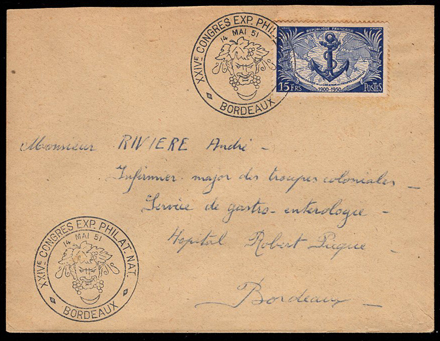 XXIVᵉ CONGRES EXP. PHILAT. NAT.
14 MAI 51
BORDEAUX
15 FRS
1900-1950
POSTES
Monsieur RIVIERE André -
Infirmier major des troupes coloniales -
Service de gastro-enterologie -
Hopital Robert Picqué -
Bordeaux -
XXIVᵉ CONGRES EXP. PHILAT. NAT.
14 MAI 51
BORDEAUX